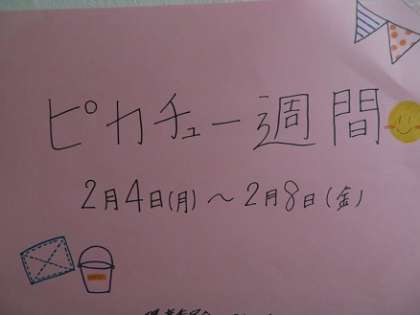 ピカチュー週間
2月4日(月)～2月8日(金)